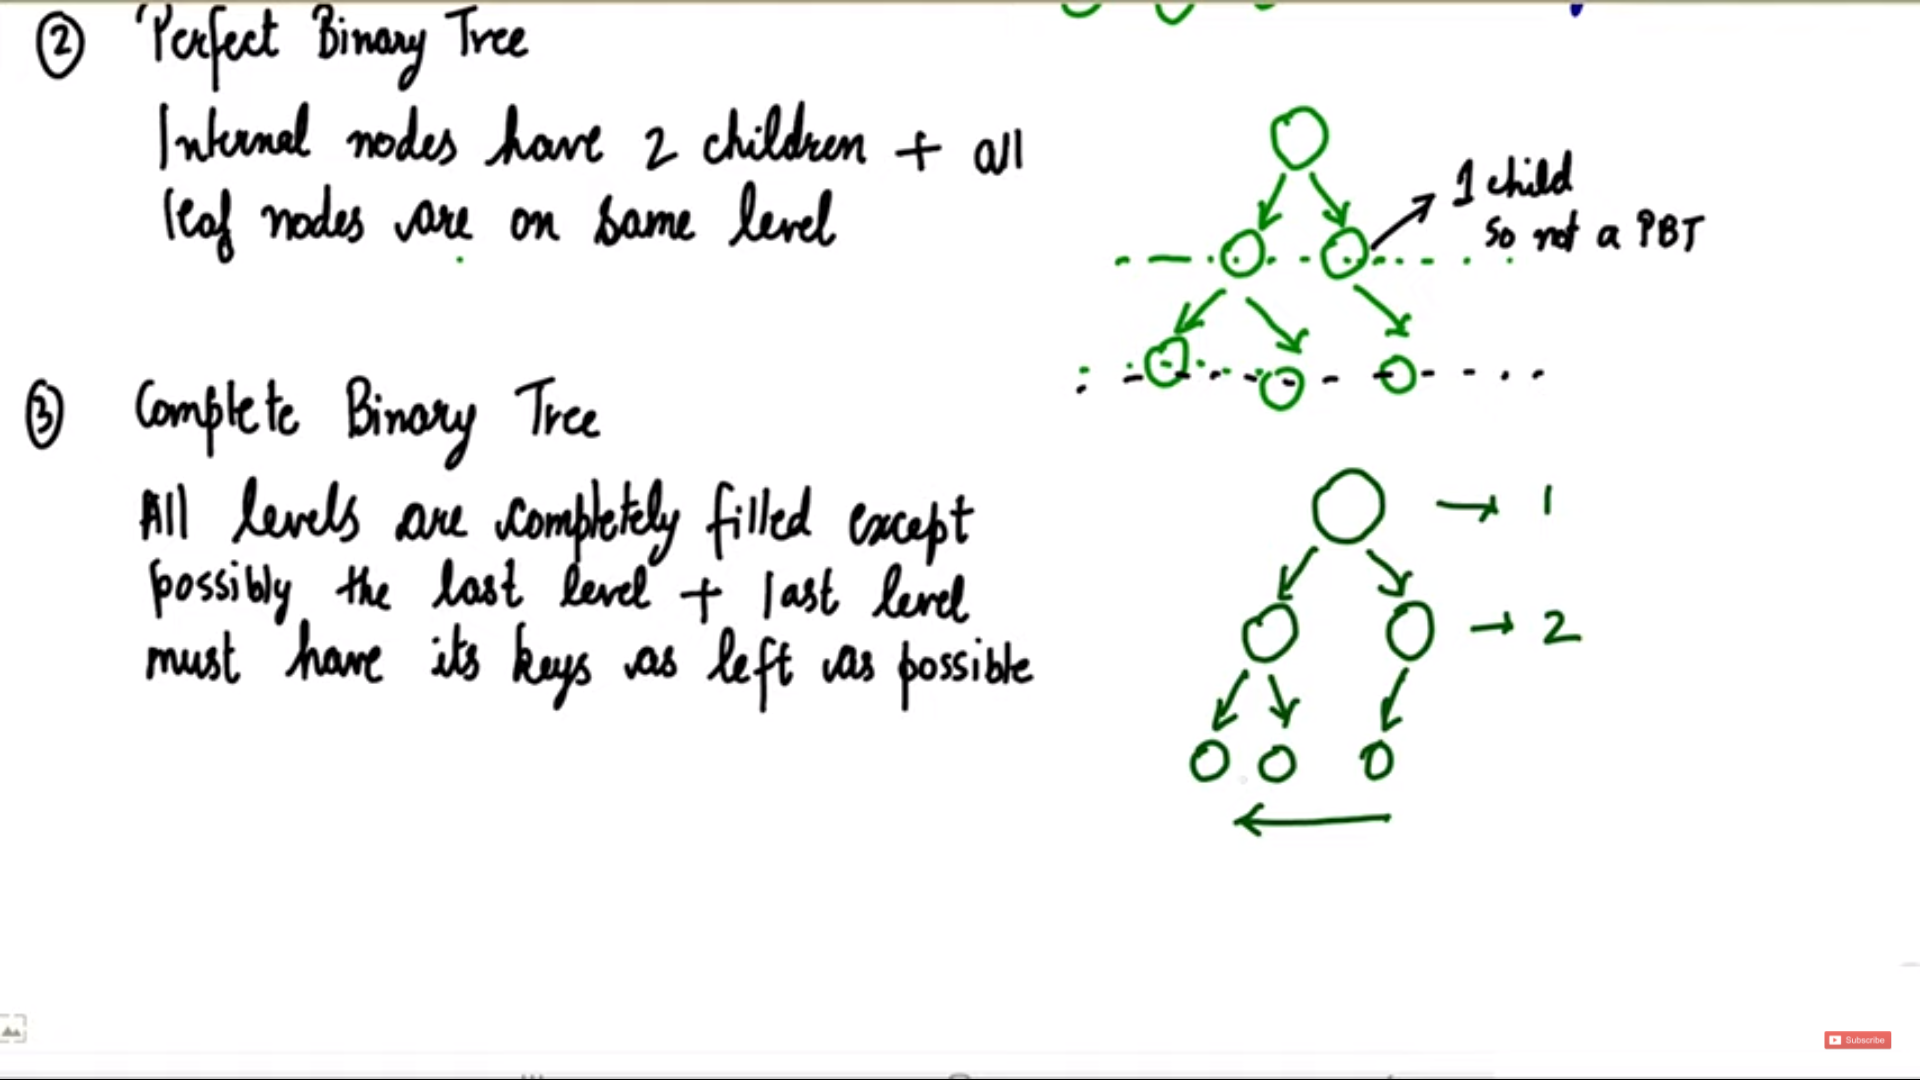 ② Perfect Binary Tree
Internal nodes have 2 children + all
leaf nodes are on same level
1 child
so not a PBT
③ Complete Binary Tree
All levels are completely filled except
possibly the last level + last level
must have its keys as left as possible
→ 1
→ 2
Subscribe